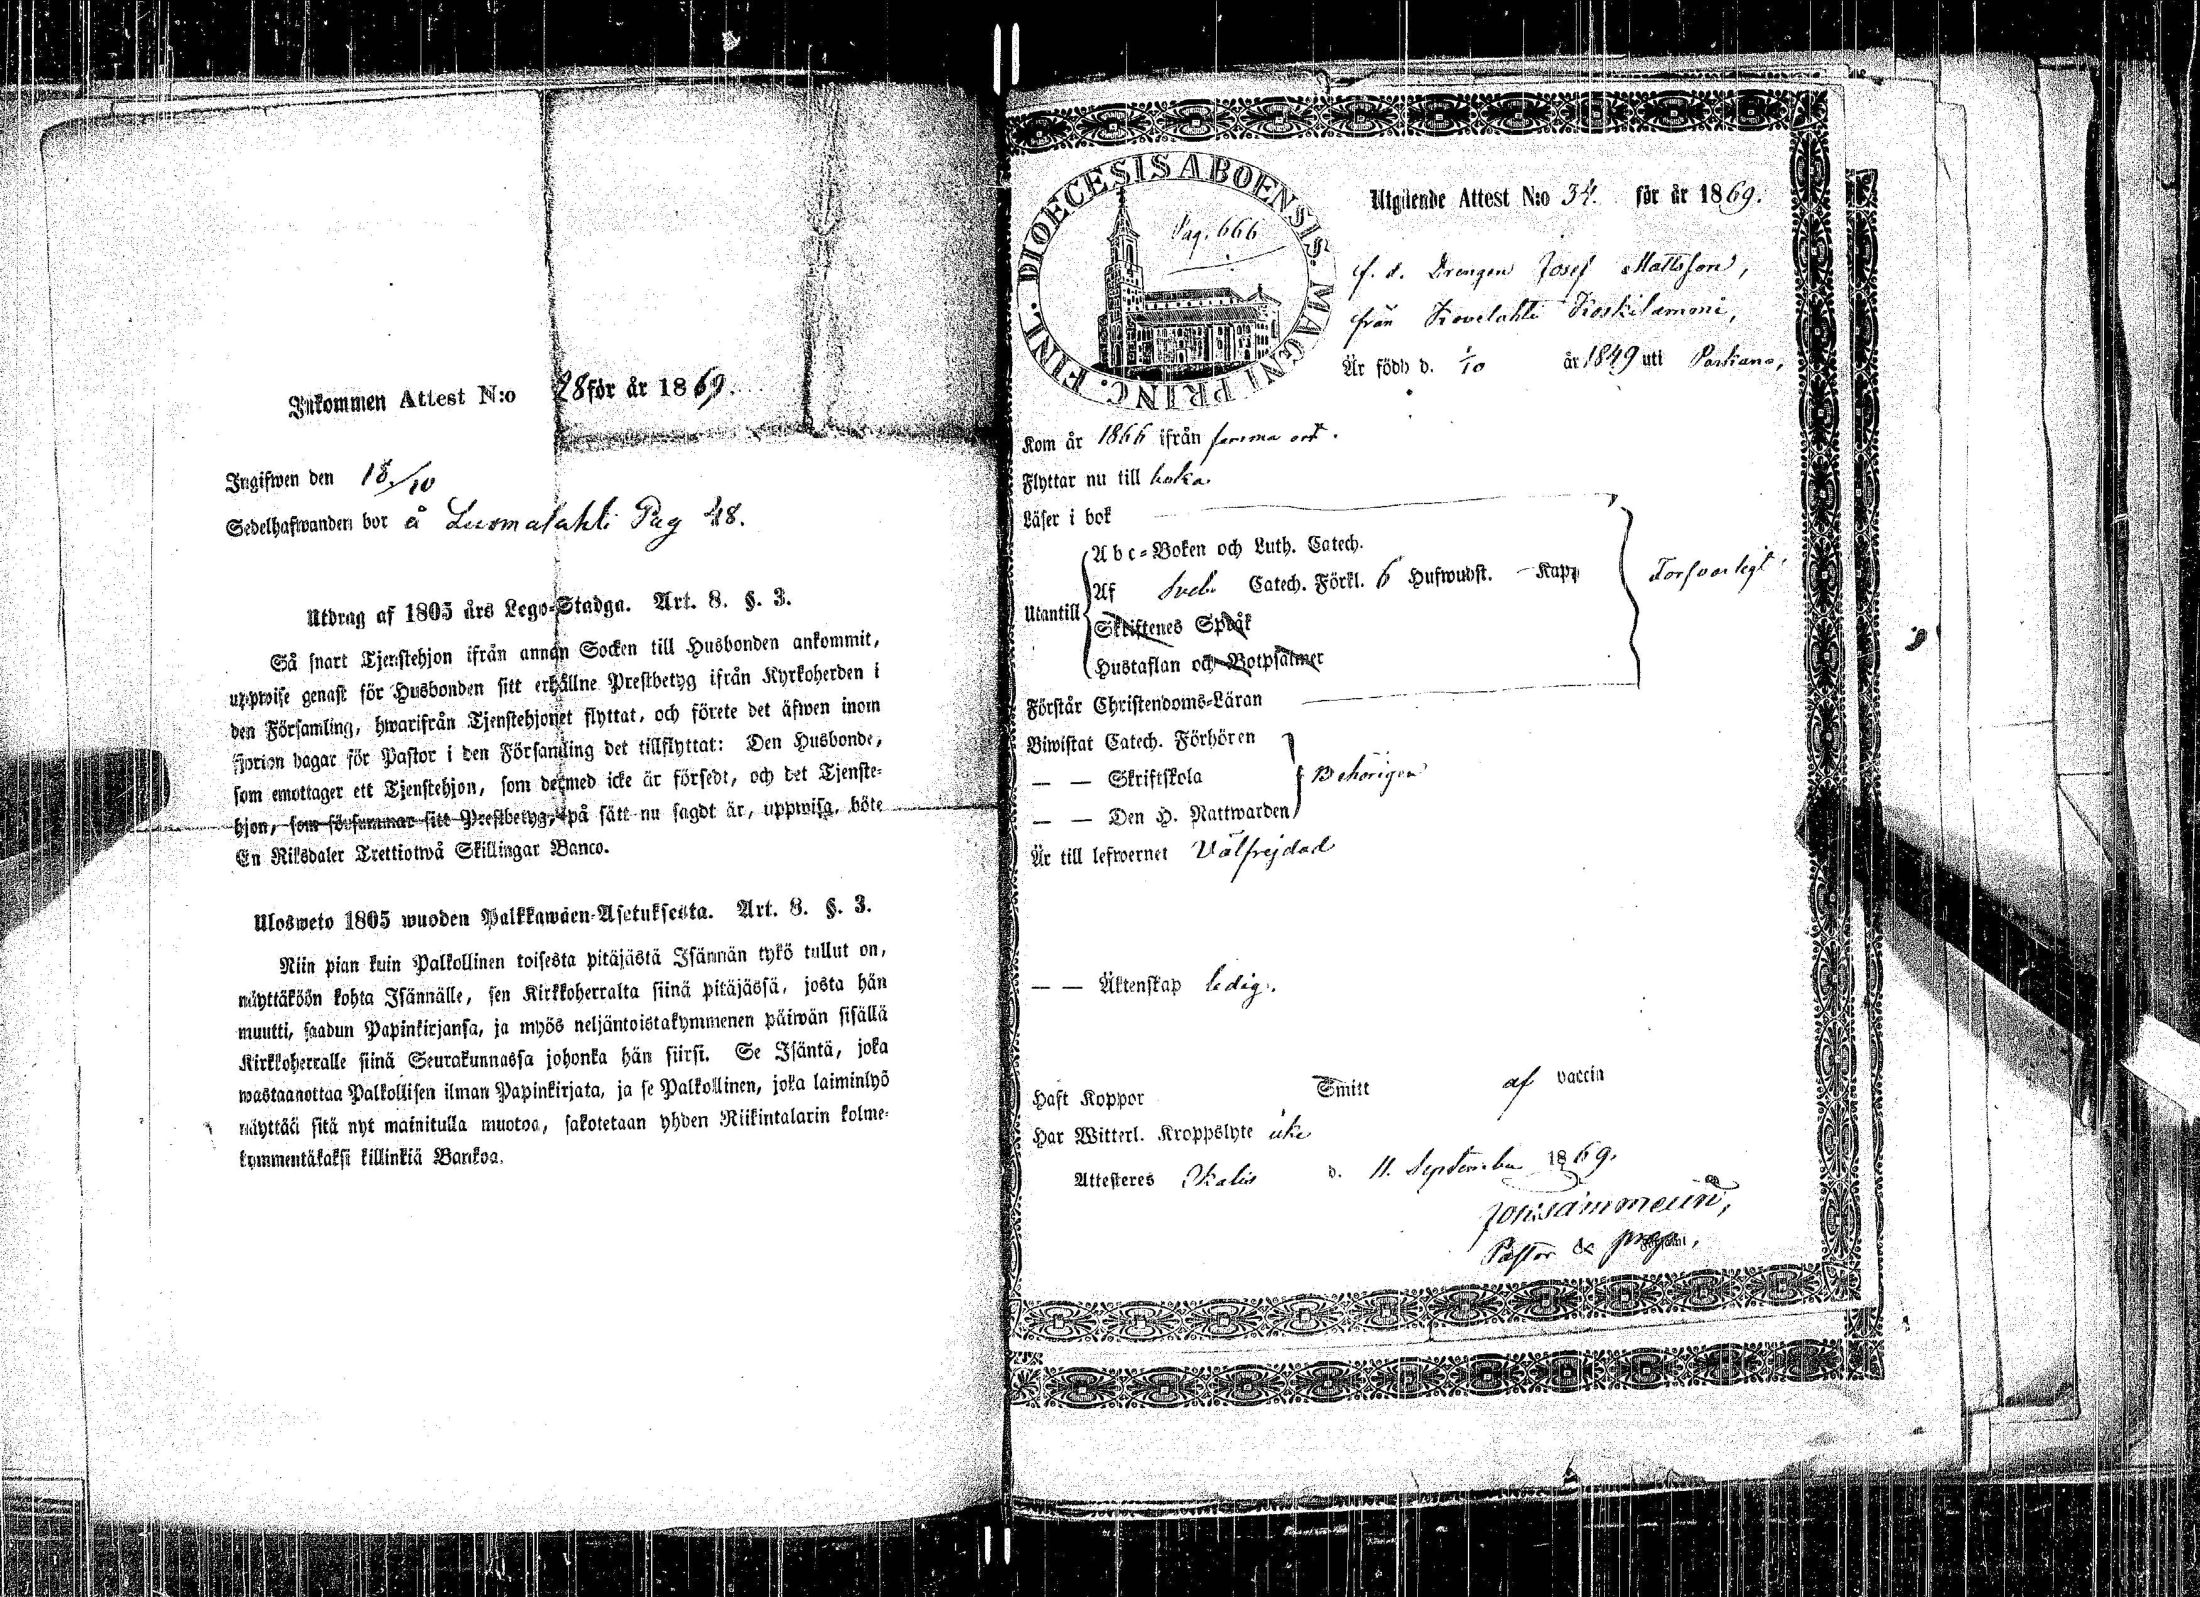 Inkommen Attest N:o 28 för år 1869.
Ingifwen den 18/10
Sedelhafwanden bor å Luomalahti Pag 48.
Utdrag af 1805 års Lego-Stadga. Art. 8. §. 3.
Så snart Tjenstehjon ifrån annan Socken till Husbonden ankommit,
uppwise genast för Husbonden sitt erhållne Prestbetyg ifrån Kyrkoherden i
den Församling, hwarifrån Tjenstehjonet flyttat, och förete det äfwen inom
fjorton dagar för Pastor i den Församling det tillflyttat: Den Husbonde,
som emottager ett Tjenstehjon, som dermed icke är försedt, och det Tjenste-
hjon, som försummar sitt Prestbetyg, på sätt nu sagdt är, uppwisa, böte
En Riksdaler Trettiotwå Skillingar Banco.
Ulosweto 1805 wuoden Palkkawäen-Asetuksesta. Art. 8. §. 3.
Niin pian kuin Palkollinen toisesta pitäjästä Isännän tykö tullut on,
näyttäköön kohta Isännälle, sen Kirkkoherralta siinä pitäjässä, josta hän
muutti, saadun Papinkirjansa, ja myös neljäntoistakymmenen päiwän sisällä
Kirkkoherralle siinä Seurakunnassa johonka hän siirsi. Se Isäntä, joka
wastaanottaa Palkollisen ilman Papinkirjata, ja se Palkollinen, joka laiminlyö
näyttää sitä nyt mainitulla muotoa, sakotetaan yhden Riikintalarin kolme-
kymmentäkaksi killinkiä Bankoa.
DIOECESIS ABOENSIS. MAGNI PRINC. FINL.
Pag. 666
Utgående Attest N:o 34. för år 1869.
f. d. Drengen Josef Mattsson,
från Kovelahti Koskilammi,
Är född d. 1/10 år 1849 uti Parkano,
Kom år 1866 ifrån samma ort.
Flyttar nu till
Läser i bok
Utantill
Abc-Boken och Luth. Catech.
Af Sveb. Catech. Förkl. 6 Hufwudst. - Kap.
Skriftenes Språk
Hustaflan och Botpsalmer
Försvarligt
Förstår Christendoms-Läran
Biwistat Catech. Förhören
— — Skriftskola
— — Den H. Nattwarden
Behörigen
Är till lefwernet Välfrejdad
— — Äktenskap ledig.
Haft Koppor Smitt af vaccin
Har Witterl. Kroppslyte icke
Attesteres Ikalis d. 11. September 1869.
Pastor &